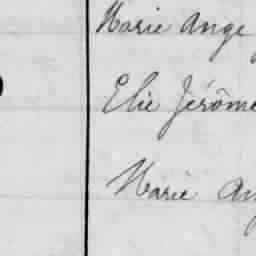 Marie Ange
Elie Jérôme
Marie An